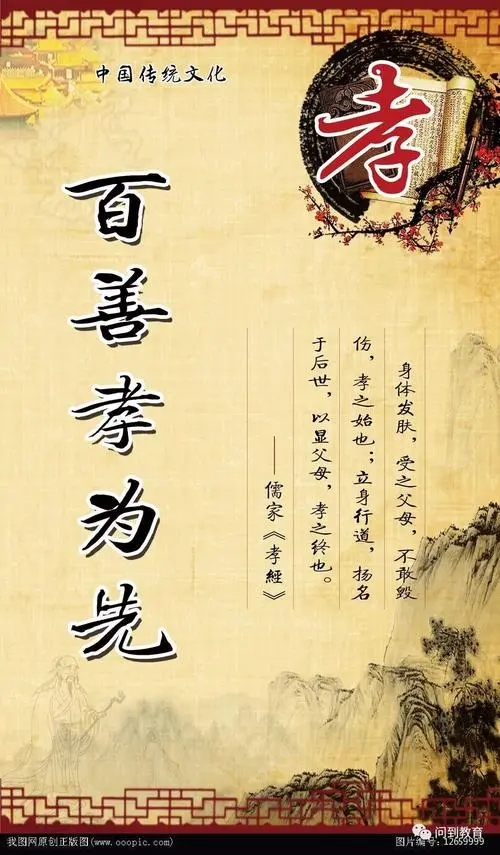 中国传统文化
孝
百善孝为先
身体发肤，受之父母，不敢毁
伤，孝之始也；立身行道，扬名
于后世，以显父母，孝之终也。
——儒家《孝經》
问到教育
我图网原创正版图(www.ooopic.com)
图片编号:12659999